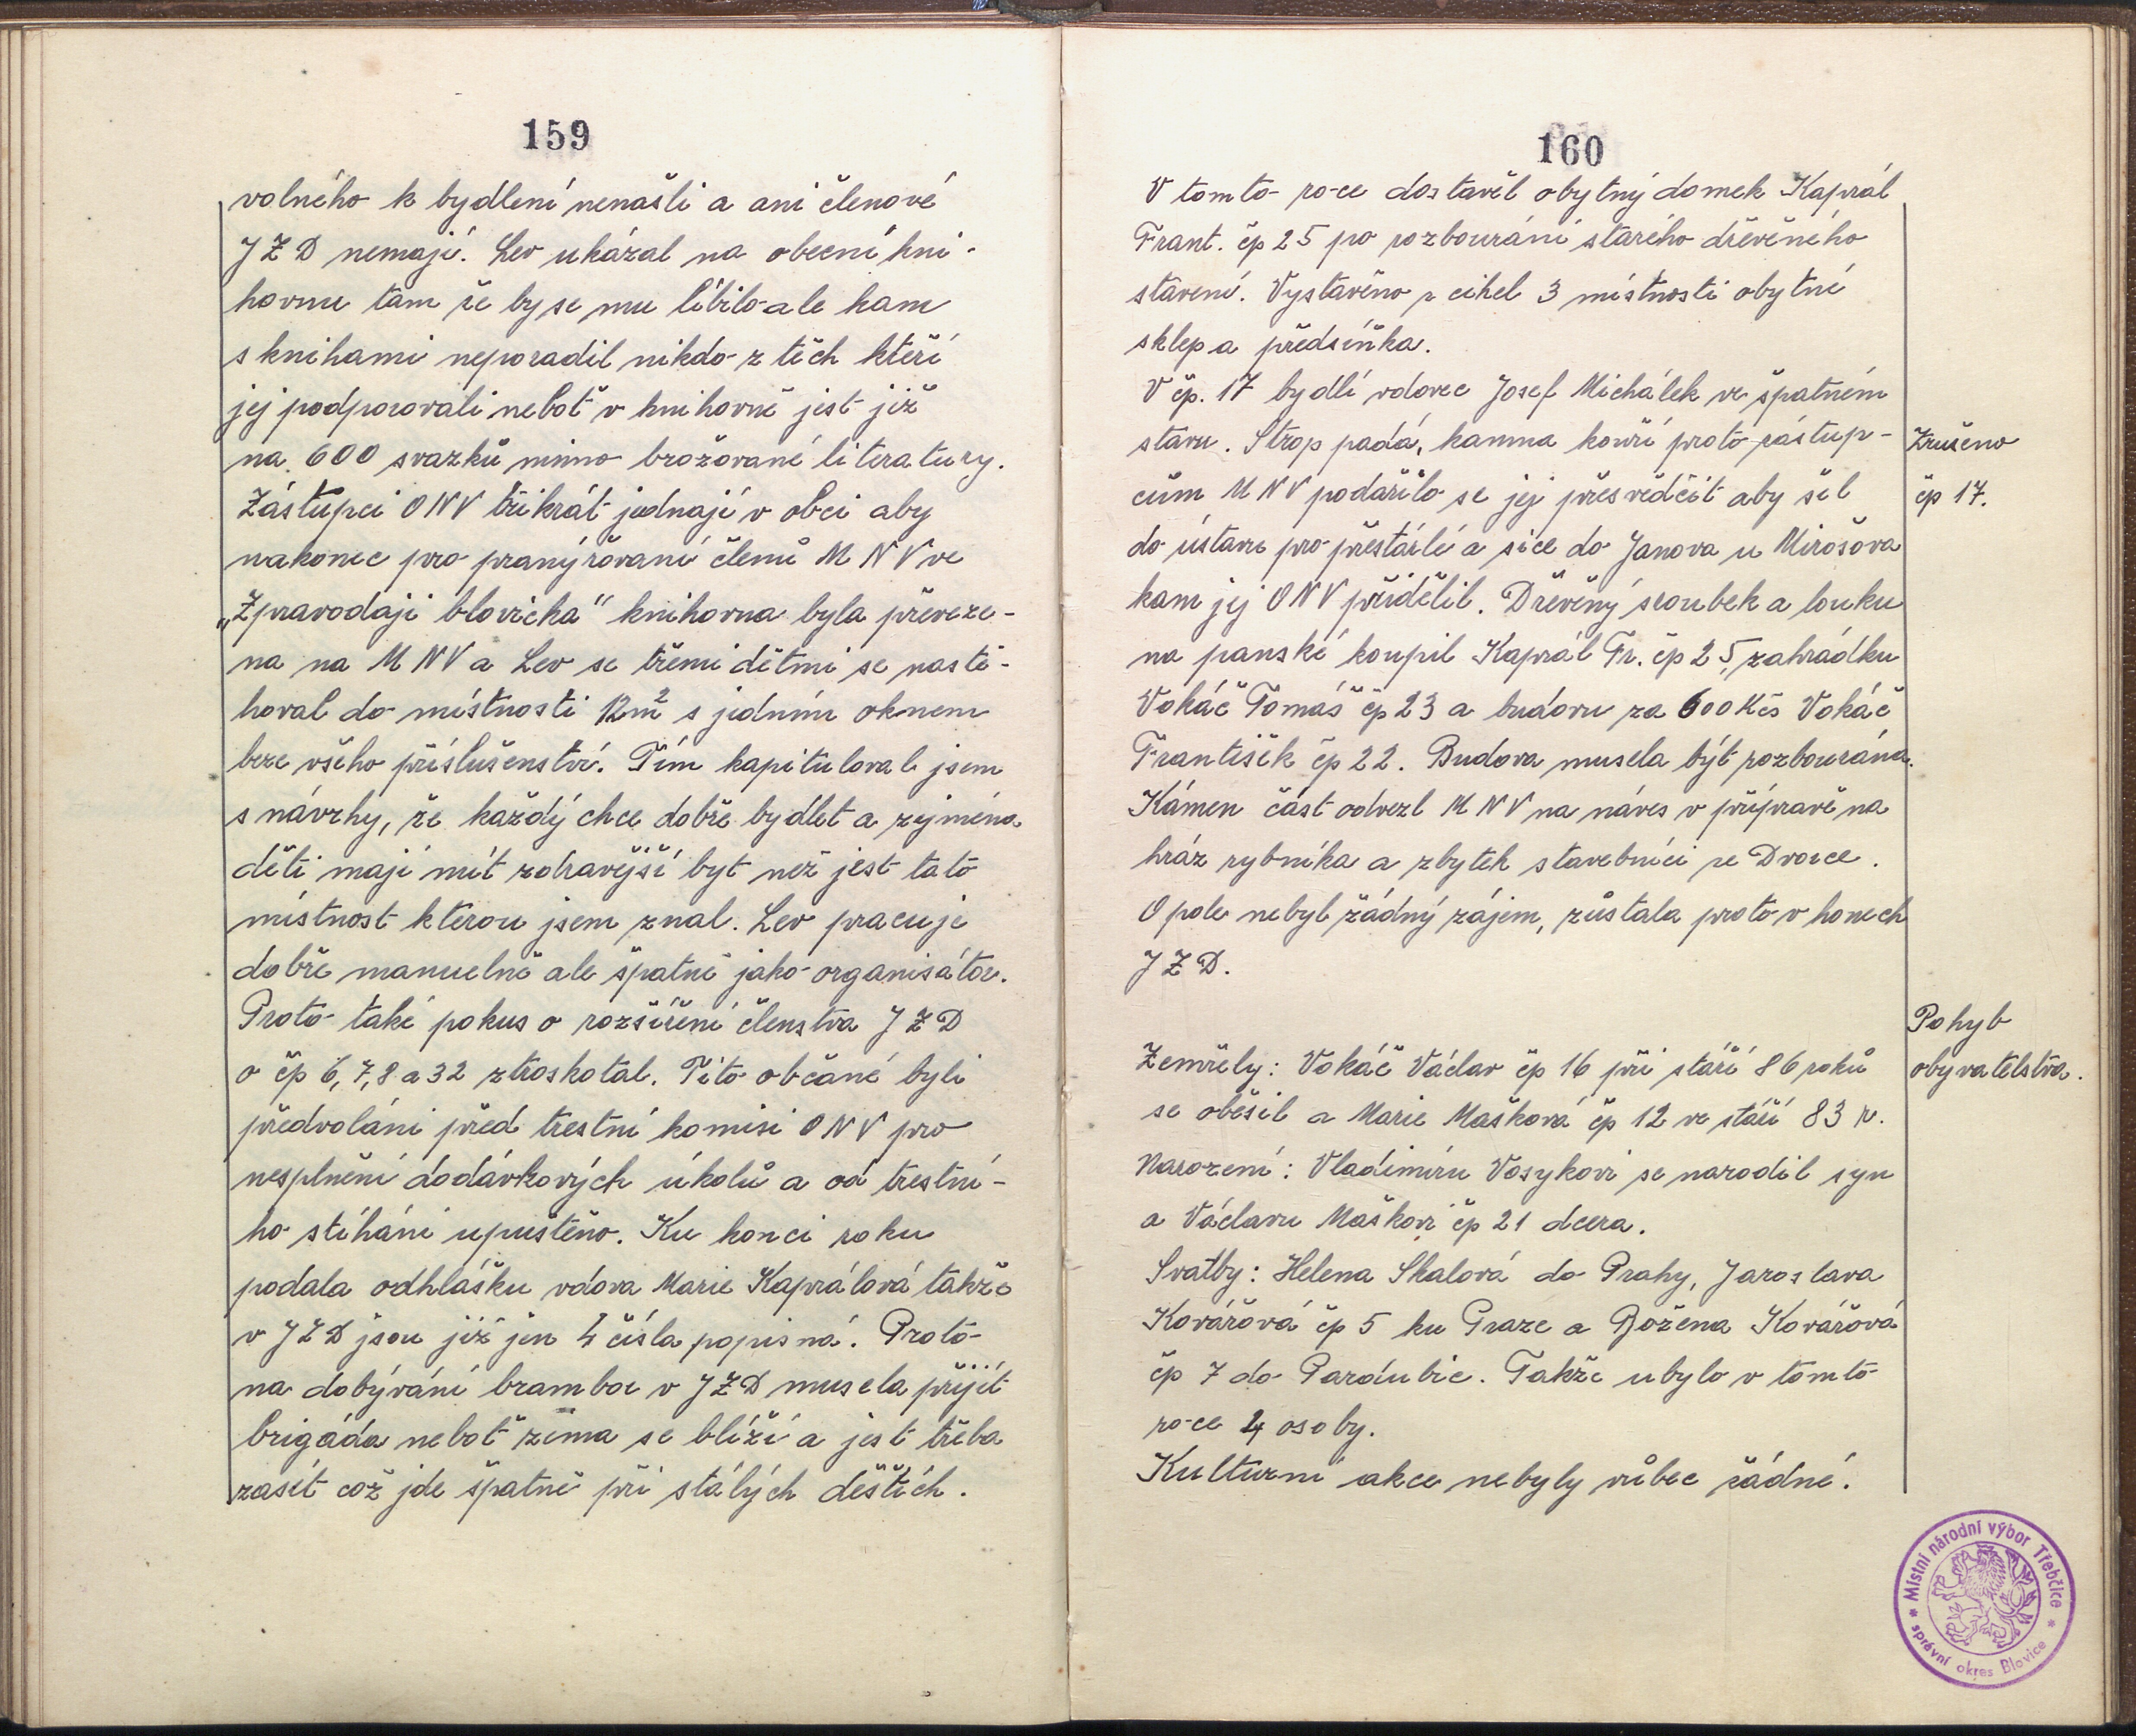 159
volného k bydlení nenašli a ani členové
JZD nemají. Lev ukázal na obecní kni-
hovnu tam že by se mu líbilo ale kam
s knihami neporadil nikdo z těch kteří
jej podporovali neboť v knihovně jest již
na 600 svazků mimo brožované literatury.
Zástupci ONV třikrát jednají v obci aby
nakonec pro pranýřování členů MNV ve
„Zpravodaji blovicka" knihovna byla převeze-
na na MNV a Lev se třemi dětmi se nastě-
hoval do místnosti 12m² s jedním oknem
beze všeho příslušenství. Tím kapituloval jsem
s návrhy, že každý chce dobře bydlet a zejména
děti mají mít zdravější byt než jest tato
místnost kterou jsem znal. Lev pracuje
dobře manuelně ale špatně jako organisátor.
Proto také pokus o rozšíření členstva JZD
o čp 6, 7, 8 a 32 ztroskotal. Tito občané byli
předvoláni před trestní komisi ONV pro
nesplnění dodávkových úkolů a od trestní-
ho stíhání upuštěno. Ku konci roku
podala odhlášku vdova Marie Kaprálová takže
v JZD jsou již jen 4 čísla popisná. Proto
na dobývání brambor v JZD musela přijít
brigáda neboť zima se blíží a jest třeba
zasít což jde špatně při stálých deštích.
160
V tomto roce dostavěl obytný domek Kaprál
Frant. čp 25 po rozbourání starého dřevěného
stavení. Vystavěno z cihel 3 místnosti obytné
sklep a předsíňka.
V čp. 17 bydlí vdovec Josef Michálek ve špatném
stavu. Strop padá, kamna kouří proto zástup-
cům MNV podařilo se jej přesvědčit aby šel
do ústavu pro přestárlé a sice do Janova u Mirošova
kam jej ONV přidělil. Dřevěný sroubek a louku
na panské koupil Kaprál Fr. čp 25, zahrádku
Vokáč Tomáš čp 23 a budovu za 600 Kčs Vokáč
František čp 22. Budova musela být rozbourána.
Kámen část odvezl MNV na náves v přípravě na
hráz rybníka a zbytek stavebníci ze Dvorce.
O pole nebyl žádný zájem, zůstala proto v honech
JZD.
Zrušeno
čp 17.
Pohyb
obyvatelstva.
Zemřely: Vokáč Václav čp 16 při stáří 86 roků
se oběsil a Marie Mašková čp 12 ve stáří 83 r.
Narození: Vladimíru Vosykovi se narodil syn
a Václavu Maškovi čp 21 dcera.
Svatby: Helena Skalová do Prahy, Jaroslava
Kovářová čp 5 ku Praze a Božena Kovářová
čp 7 do Pardubic. Takže ubylo v tomto
roce 4 osoby.
Kulturní akce nebyly vůbec žádné.
* Místní národní výbor Třebčice *
správní okres Blovice